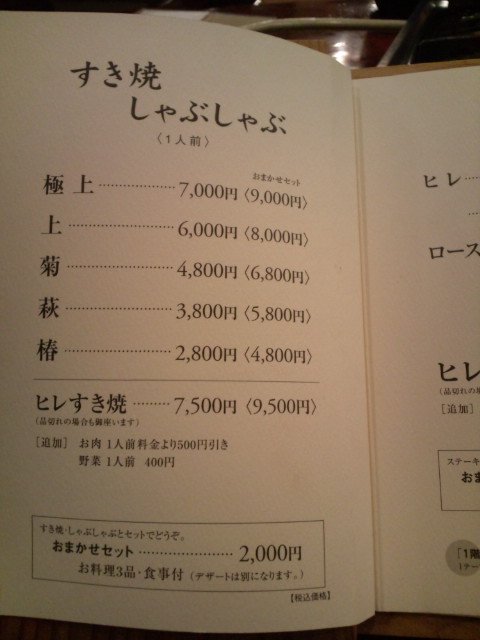 すき焼
しゃぶしゃぶ
〈1人前〉
おまかせセット
極上 7,000円〈9,000円〉
上 6,000円〈8,000円〉
菊 4,800円〈6,800円〉
萩 3,800円〈5,800円〉
椿 2,800円〈4,800円〉
ヒレすき焼 7,500円〈9,500円〉
(品切れの場合も御座います)
[追加] お肉 1人前料金より500円引き
野菜 1人前 400円
すき焼・しゃぶしゃぶとセットでどうぞ。
おまかせセット 2,000円
お料理3品・食事付(デザートは別になります。)
【税込価格】
ヒレ
ロース
ヒレ
(品切れの場
[追加]
ステーキ
おま
「1階